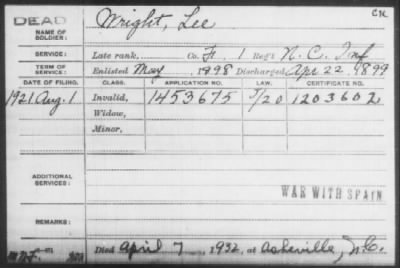 DEAD
CK
NAME OF SOLDIER: Wright, Lee
SERVICE: Late rank, Co. F. 1 Reg't N.C. Inf
TERM OF SERVICE: Enlisted May, 1898 Discharged Apr 22, 1899
DATE OF FILING. CLASS. APPLICATION NO. LAW. CERTIFICATE NO.
1921 Aug. 1 Invalid, 1453675 5/20 1203602
Widow,
Minor,
ADDITIONAL SERVICES:
WAR WITH SPAIN
REMARKS:
Died April 7 1932, at Asheville, N.C.